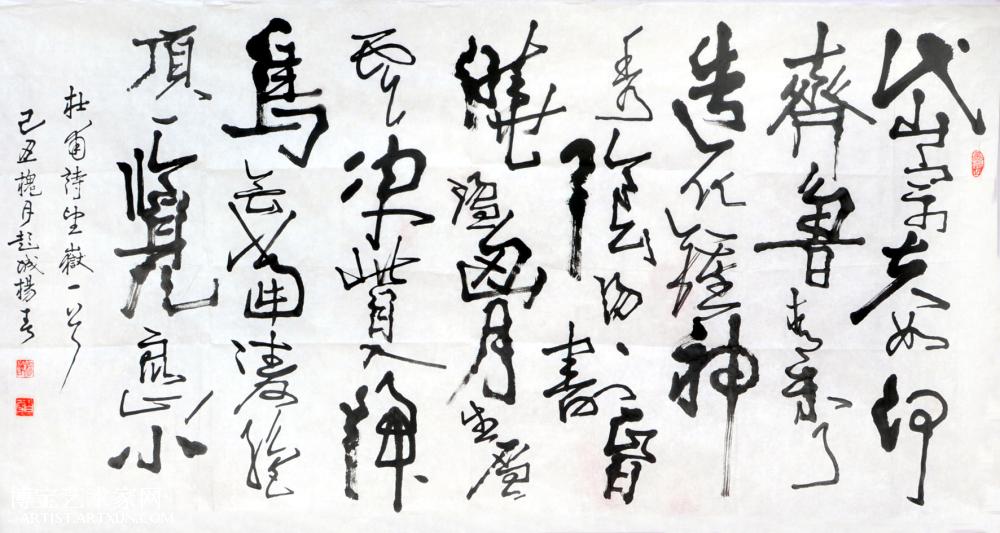 岱宗夫如何
齊魯青未了
造化鍾神
秀陰陽割昏
曉盪胸生層
雲決眥入歸
鳥會當凌絶
頂一覽眾山小
杜甫詩望嶽一首
己丑槐月赵城楊春
博宝艺术家网
ARTIST.ARTXUN.COM